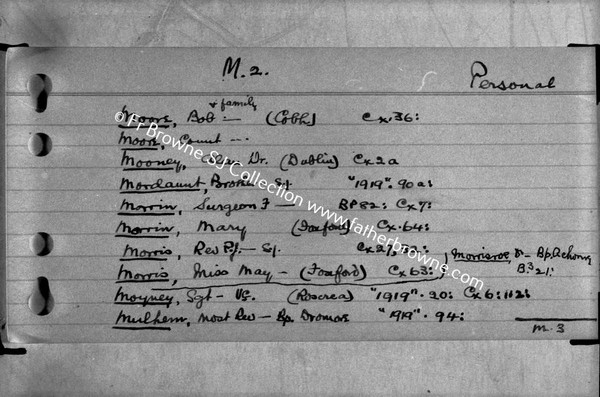 M.2.
Personal
& family
Moore, Bob — (Cobh) Cx.36:
Moore, Count —
Mooney, Dr. (Dublin) Cx2a
Mordaunt, Sj. "1919". 90a:
Morrin, Surgeon F — BP82: Cx7:
Morrin, Mary (Foxford) Cx.64:
Morris, Rev P.J. — Sj. Cx27,
Morris, Miss May — (Foxford) Cx63:
Morrisroe Dr — Bp. Achonry
B521:
Moyney, Sgt — VC. (Roscrea) "1919". 20: Cx6: 112:
Mulhern, Most Rev — Bp. Dromore "1919". 94:
M.3
© Fr Browne SJ Collection www.fatherbrowne.com